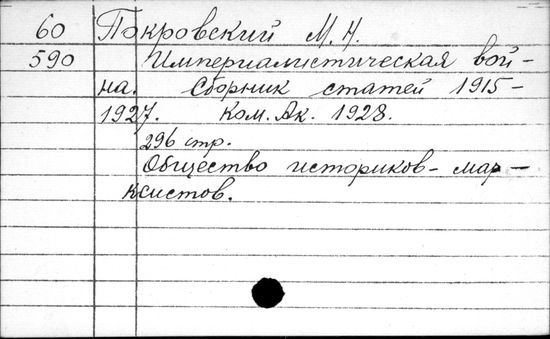 60 Покровский М. Н.
590 Империалистическая вой-
на. Сборник статей 1915-
1927. Ком. Ак. 1928.
296 стр.
Общество историков-мар-
ксистов.